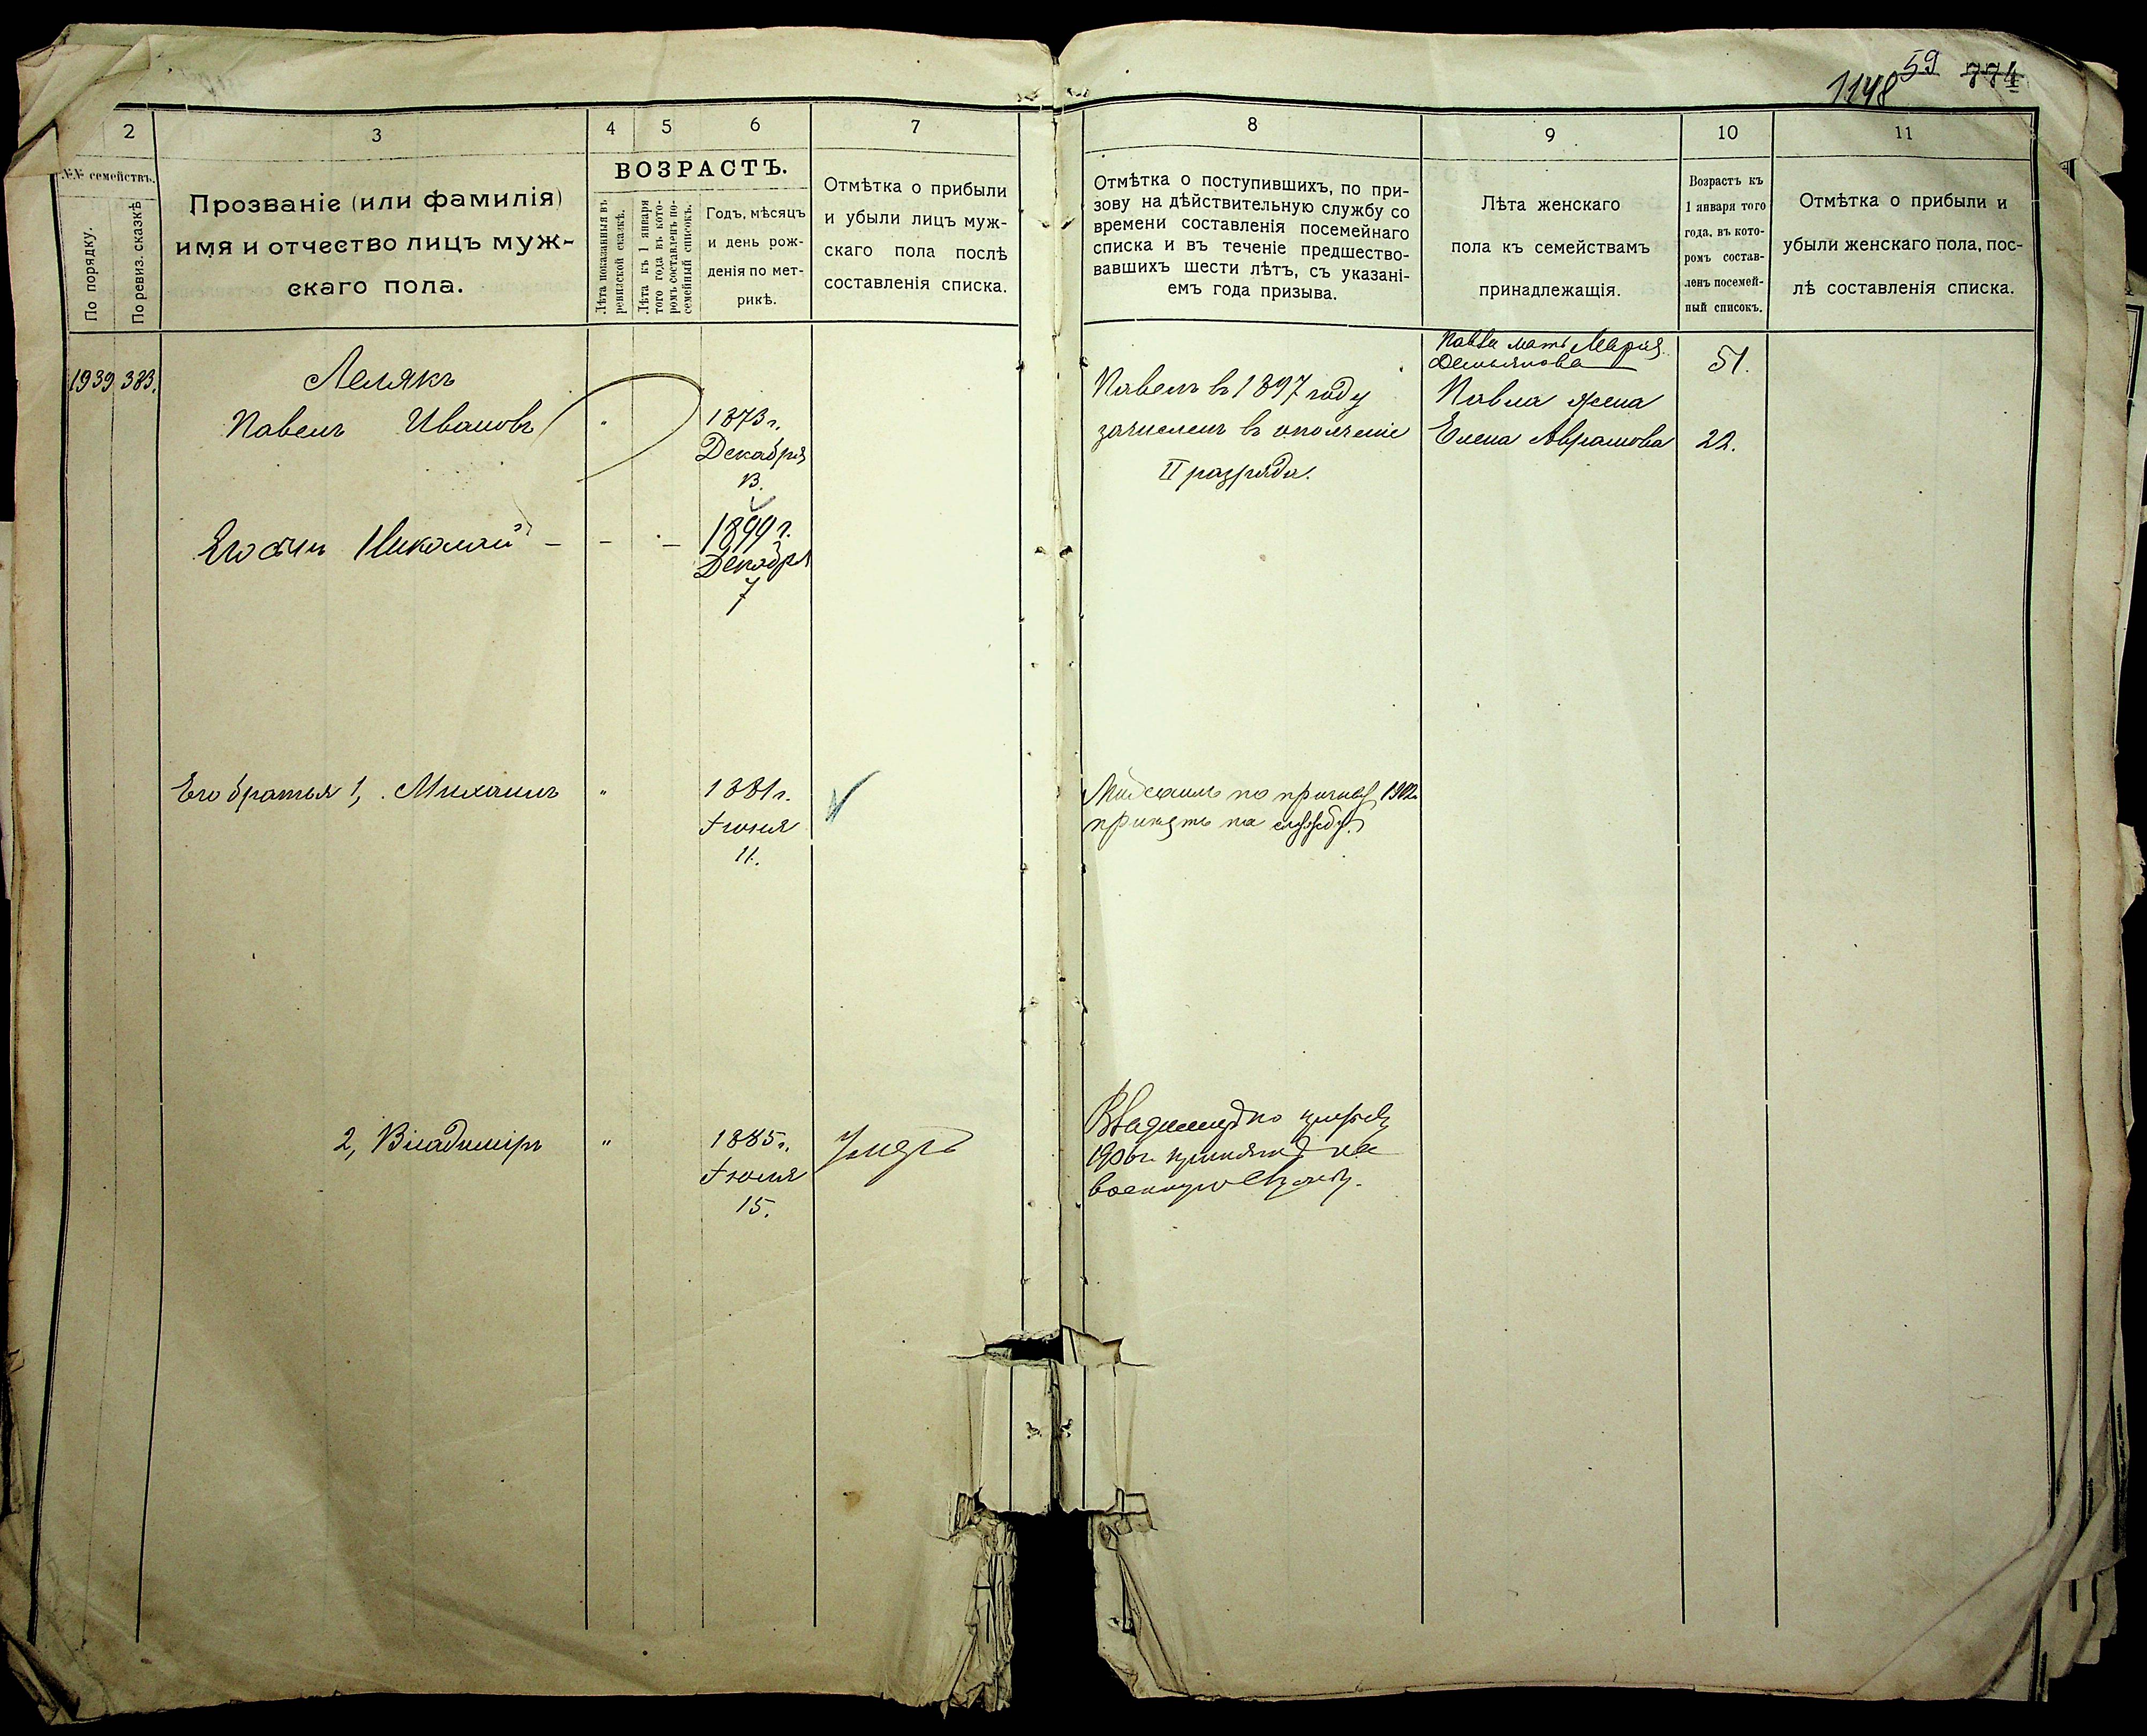 1148 59 774
2
3
4
5
6
7
8
9
10
11
№№ семействъ.
По порядку.
По ревиз. сказкѣ
Прозваніе (или фамилія)
имя и отчество лицъ муж-
скаго пола.
ВОЗРАСТЪ.
Лѣта показанныя въ
ревизской сказкѣ.
Лѣта къ 1 января
того года въ кото-
ромъ составленъ по-
семейный списокъ.
Годъ, мѣсяцъ
и день рож-
денія по мет-
рикѣ.
Отмѣтка о прибыли
и убыли лицъ муж-
скаго пола послѣ
составленія списка.
Отмѣтка о поступившихъ, по при-
зову на дѣйствительную службу со
времени составленія посемейнаго
списка и въ теченіе предшество-
вавшихъ шести лѣтъ, съ указані-
емъ года призыва.
Лѣта женскаго
пола къ семействамъ
принадлежащія.
Возрастъ къ
1 января того
года, въ кото-
ромъ состав-
ленъ посемей-
ный списокъ.
Отмѣтка о прибыли и
убыли женскаго пола, пос-
лѣ составленія списка.
1939 383.
Лелякъ
Павелъ Ивановъ "
1873 г.
Декабря
13.
Павелъ въ 1897 году
зачисленъ въ ополченіе
II разряда.
Павла мать Марія
Демьянова 51.
Павла жена
Елена Аврамова 22.
Его сынъ Николай - - -
1899 г.
Декабря
7
Его братья 1, Михаилъ "
1881 г.
Іюня
11.
Михаилъ по призыву 1902
принятъ на службу.
2, Владиміръ "
1885 г.
Іюля
15.
Умеръ
Владиміръ по призыву
1906 г. принятъ на
военную службу.